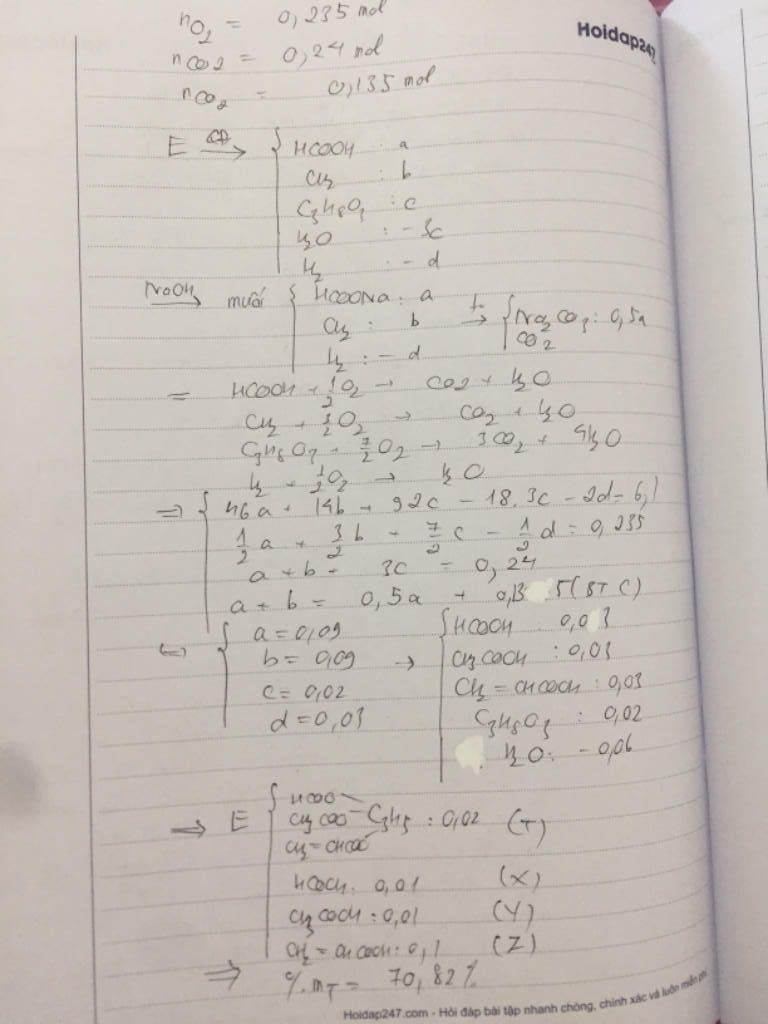 nO2 = 0,235 mol
Hoidap247
nco2 = 0,24 mol
nco2 = 0,135 mol
E CĐ→ { HCOOH : a
CH2 : b
C3H8O3 : c
H2O : -3c
H2 : -d
NaOH→ muối { HCOONa : a
CH2 : b t°→ { Na2CO3 : 0,5a
CO2
H2 : -d
= HCOOH + 1/2 O2 → CO2 + H2O
CH2 + 3/2 O2 → CO2 + H2O
C3H8O3 + 7/2 O2 → 3CO2 + 4H2O
H2 + 1/2 O2 → H2O
=> { 46a + 14b + 92c - 18.3c - 2d = 6,1
1/2 a + 3/2 b + 7/2 c - 1/2 d = 0,235
a + b + 3c = 0,24
a + b = 0,5a + 0,13 5 (BT C)
<=> { a = 0,09
b = 0,09
c = 0,02
d = 0,03
→ { HCOOH : 0,03
CH3COOH : 0,03
CH2 = CHCOOH : 0,03
C3H8O3 : 0,02
H2O : -0,06
=> E { HCOO
CH3COO - C3H5 : 0,02 (T)
CH2 = CHCOO
HCOOH : 0,01 (X)
CH3COOH : 0,01 (Y)
CH2 = CHCOOH : 0,1 (Z)
=> %mT = 70,82%
Hoidap247.com - Hỏi đáp bài tập nhanh chóng, chính xác và luôn miễn phí